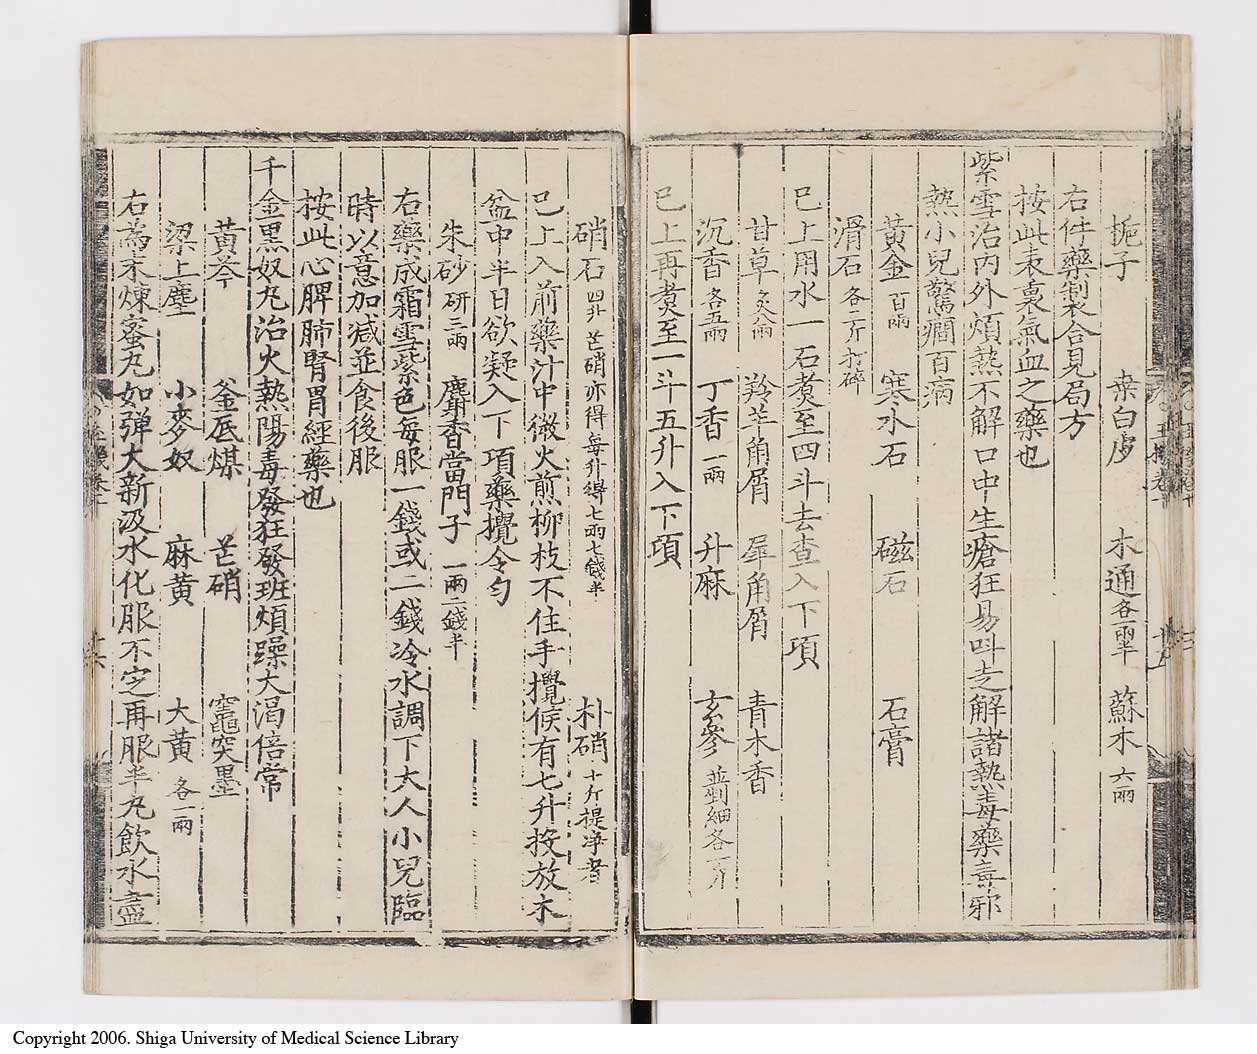 梔子 桒白皮 木通各一兩半 蘇木六兩
右件藥製合見局方
按此表裏氣血之藥也
紫雪治內外煩熱不解口中生瘡狂易呌走解諸熱毒藥毒邪
熱小兒驚癎百病
黃金百兩 寒水石 磁石 石膏
滑石各三斤打碎
巳上用水一石煑至四斗去查入下項
甘草炙八兩 羚羊角屑 犀角屑 青木香
沉香各五兩 丁香一兩 升麻 玄參並剉細各一斤
巳上再煑至一斗五升入下項
硝石四升芒硝亦得每升得七兩七錢半 朴硝十斤提淨者
巳上入前藥汁中微火煎柳枝不住手攪候有七升投放木
盆中半日欲凝入下項藥攪令勻
朱砂研三兩 麝香當門子一兩二錢半
右藥成霜雪紫色每服一錢或二錢冷水調下大人小兒臨
時以意加减並食後服
按此心脾肺腎胃經藥也
千金黑奴丸治火熱陽毒發狂發班煩躁大渴倍常
黃芩 釜底煤 芒硝 竈突墨
梁上塵 小麥奴 麻黃 大黃各一兩
右為末煉蜜丸如弹大新汲水化服不定再服半丸飲水盡
Copyright 2006. Shiga University of Medical Science Library